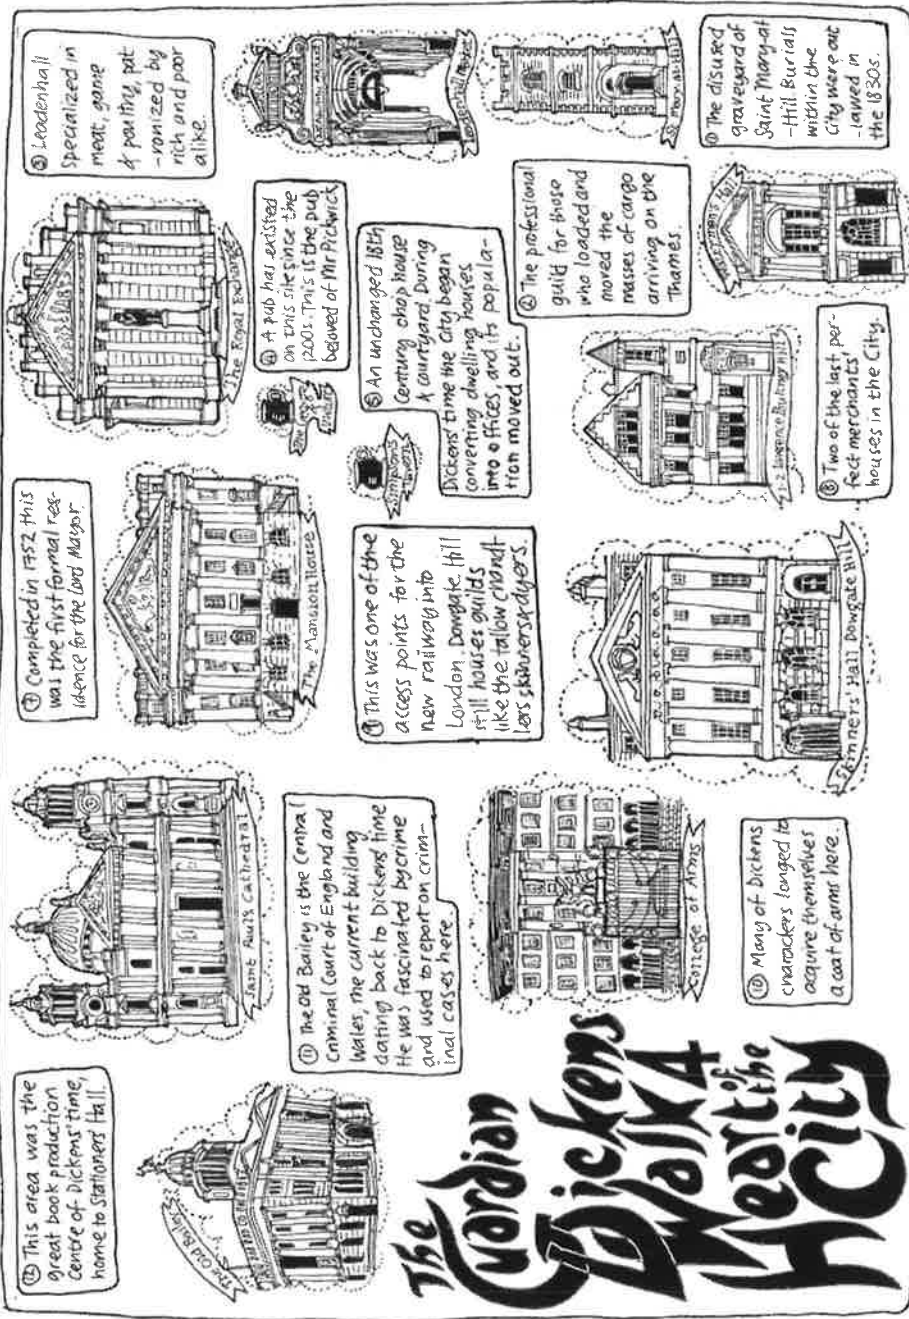 ⑫ This area was the
great book production
centre of Dickens' time,
home to Stationers' Hall.
The Old Bailey
The
Guardian
Dickens
Walk 4
Heart of the
City
Saint Paul's Cathedral
⑪ The Old Bailey is the Central
Criminal Court of England and
Wales, the current building
dating back to Dickens' time
He was fascinated by crime
and used to report on crim-
inal cases here.
College of Arms
⑩ Many of Dickens
characters longed to
acquire themselves
a coat of arms here.
⑦ Completed in 1752 this
was the first formal res-
idence for the Lord Mayor.
The Mansion House
⑨ This was one of the
access points for the
new railway into
London. Dowgate Hill
still houses guilds
like the tallow chandl-
lers skinners & dyers.
Skinners' Hall Dowgate Hill
The Royal Exchange
④ A pub has existed
on this site since the
1200s. This is the pub
beloved of Mr Pickwick
George & Vulture
Simpson's
Tavern
⑤ An unchanged 18th
Century chop house
& courtyard. During
Dickens' time the City began
converting dwelling houses
into offices, and its popula-
tion moved out.
1-2 Laurence Pountney Hill
⑧ Two of the last per-
fect merchants'
houses in the City.
③ Leadenhall
specialized in
meat, game
& poultry, pat
-ronized by
rich and poor
alike.
Leadenhall Market
② The professional
guild for those
who loaded and
moved the
masses of cargo
arriving on the
Thames.
Watermen's Hall
St Mary at Hill
① The disused
graveyard of
Saint Mary-at
-Hill. Burials
within the
City were out
-lawed in
the 1830s.